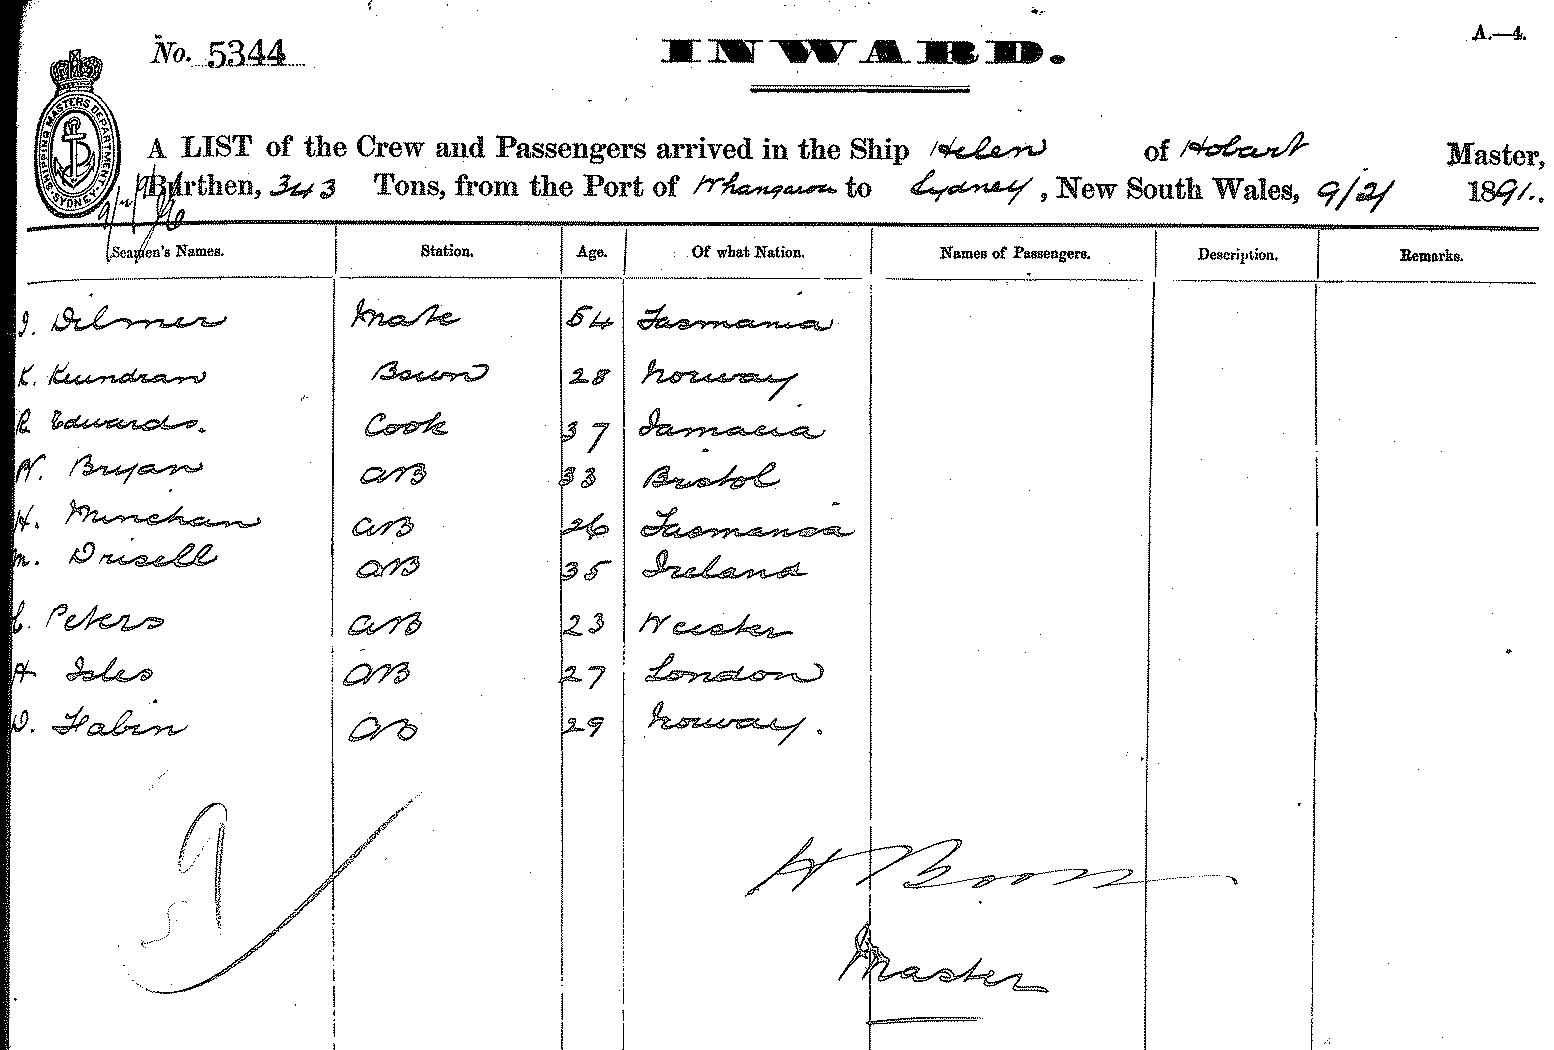 No. 5344
INWARD.
A.—4.
SHIPPING MASTERS DEPARTMENT SYDNEY
A LIST of the Crew and Passengers arrived in the Ship Helen of Hobart Master,
Burthen, 343 Tons, from the Port of to Sydney, New South Wales, 9/2/ 1891.
Seamen's Names. Station. Age. Of what Nation. Names of Passengers. Description. Remarks.
J. Dilmer Mate 54 Tasmania
K. 28 Norway
R Edwards. Cook 37 Jamacia
W. Bryan AB 33 Bristol
H. Minehan AB 26 Tasmania
M. Drisell AB 35 Ireland
C. Peters AB 23
H Isles AB 27 London
D. Habin AB 29 Norway.
9
H Boon
Master